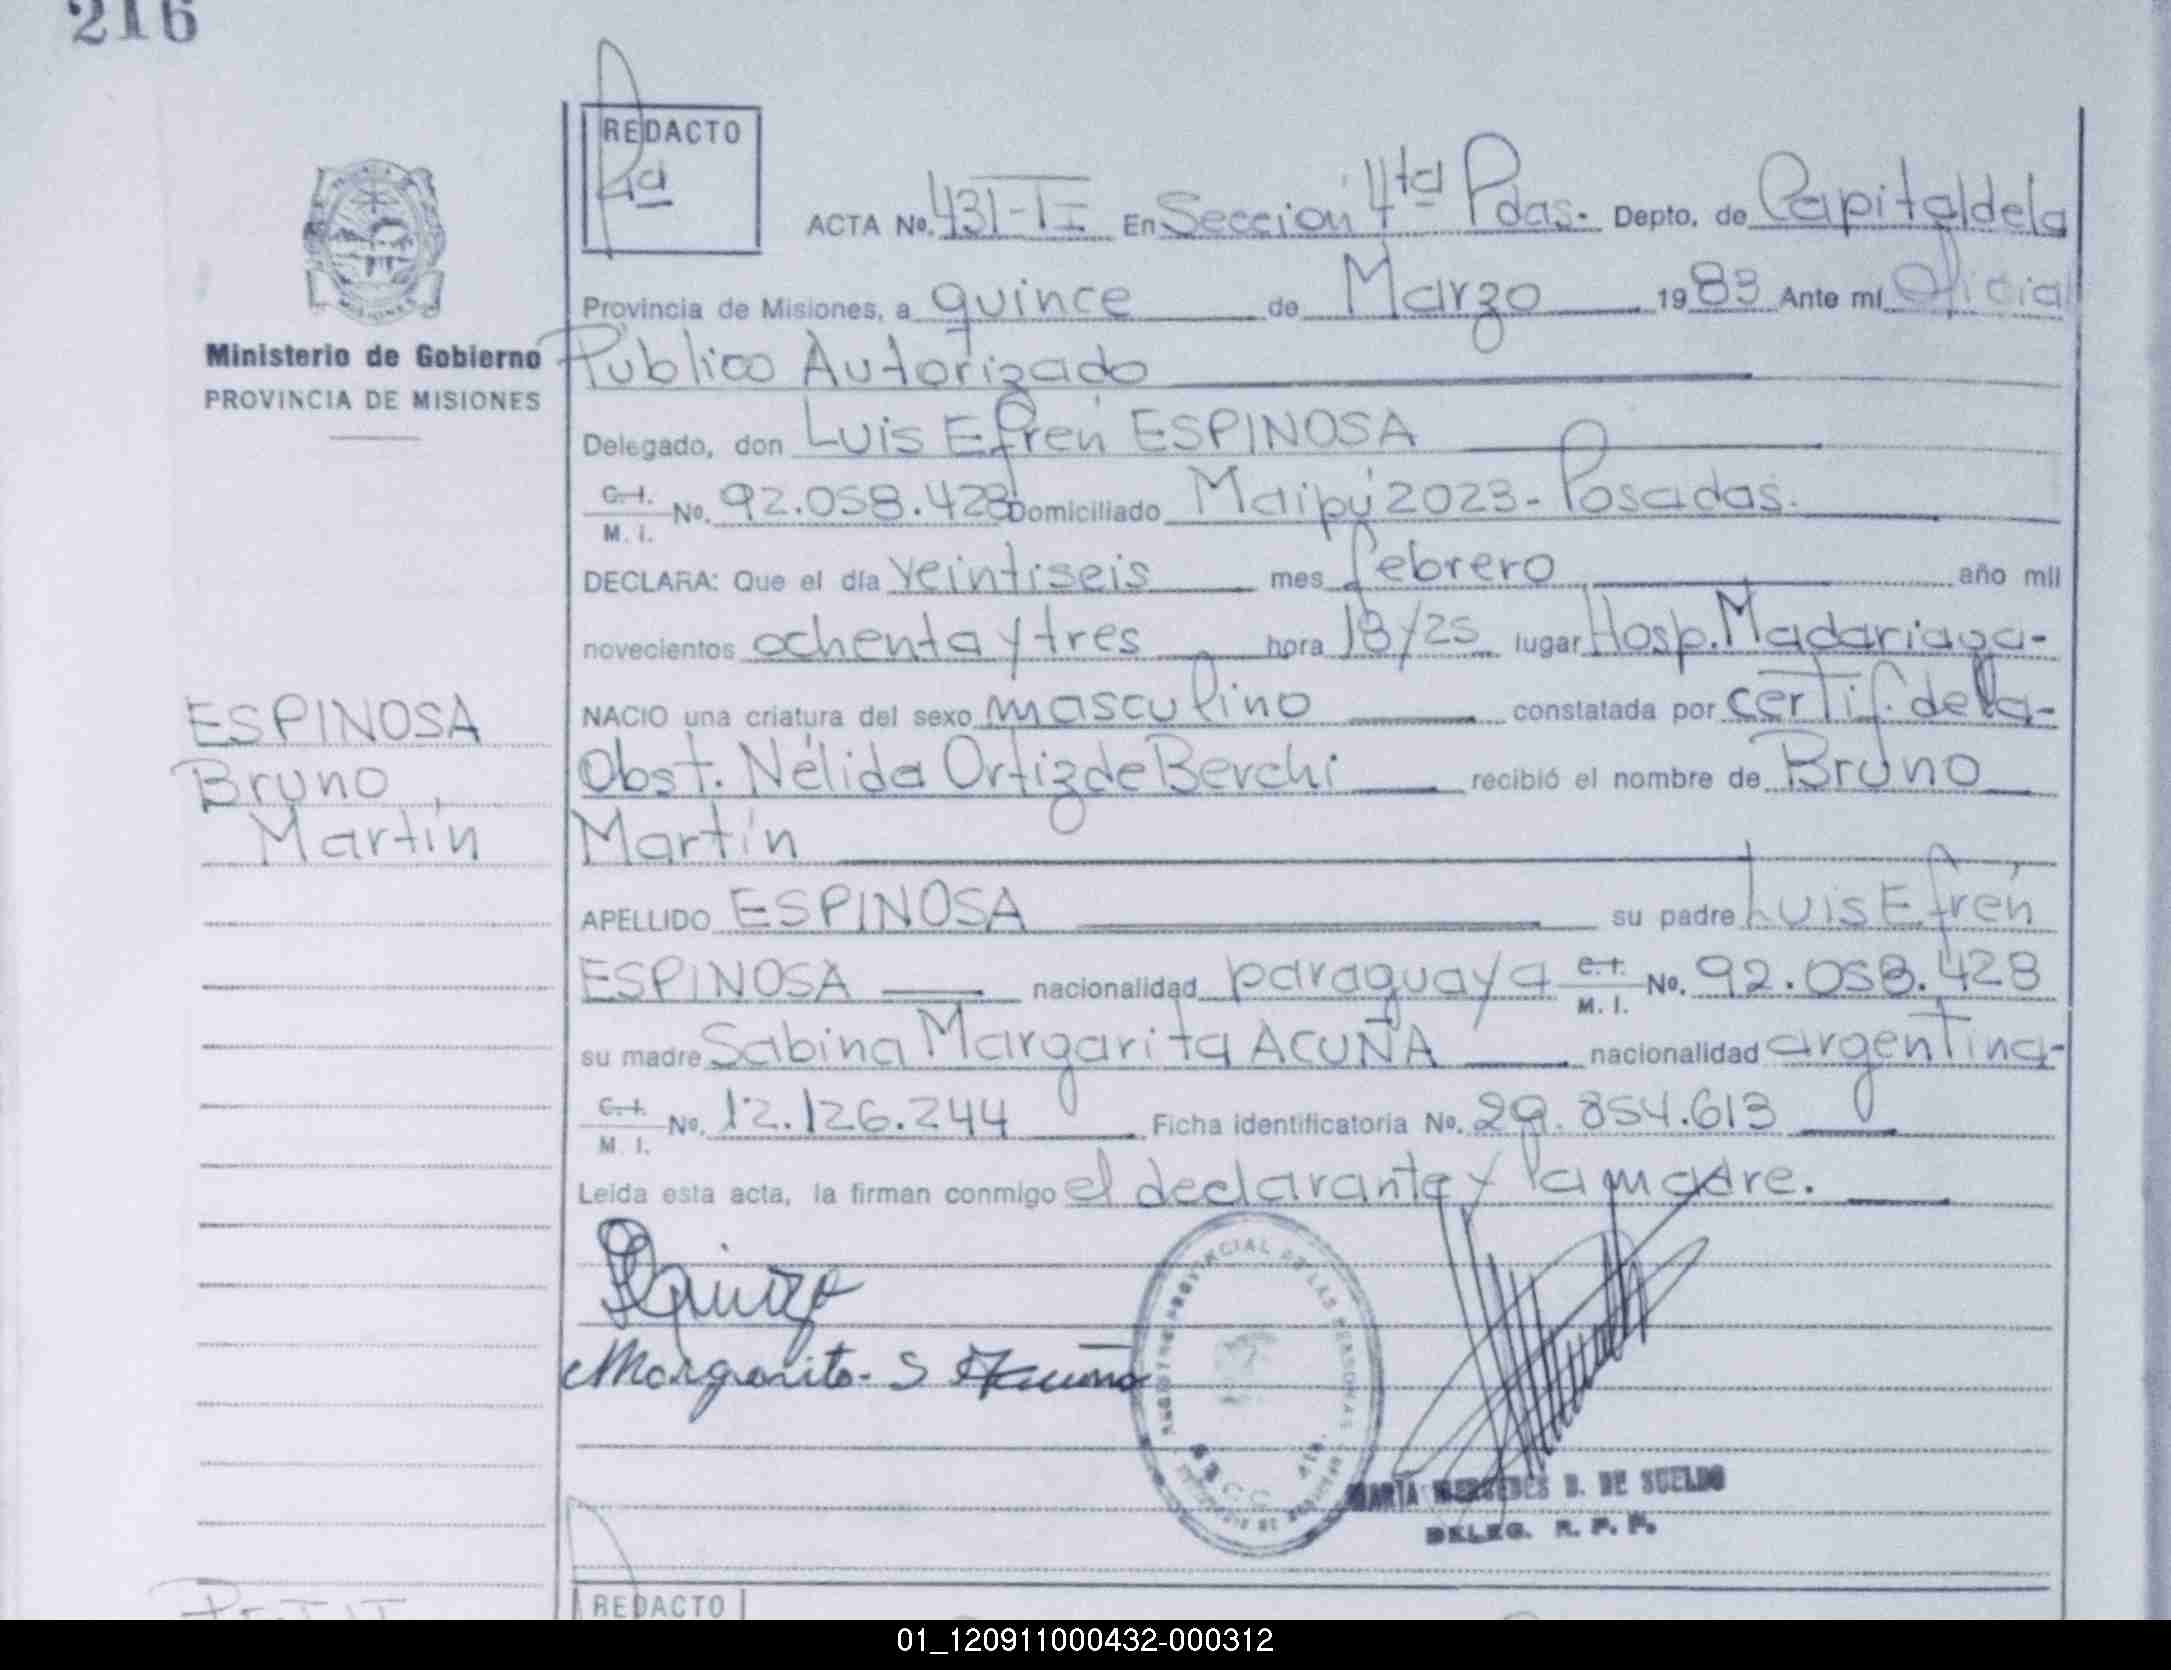 216
REDACTO
ACTA No. 431-TI En Sección 4ta Pdas. Depto. de Capital de la
Provincia de Misiones, a quince de Marzo 1983 Ante mí Oficial
Ministerio de Gobierno
PROVINCIA DE MISIONES
Público Autorizado
Delegado, don Luis Efrén ESPINOSA
C.I. M.I. No. 92.058.428 Domiciliado Maipú 2023 - Posadas.
DECLARA: Que el día veintiseis mes febrero año mil
novecientos ochenta y tres hora 18/25 lugar Hosp. Madariaga-
NACIO una criatura del sexo masculino constatada por certif. de la-
Obst. Nélida Ortiz de Berchi recibió el nombre de Bruno
Martín
ESPINOSA
Bruno
Martín
APELLIDO ESPINOSA su padre Luis Efrén
ESPINOSA nacionalidad paraguaya C.I. M.I. No. 92.058.428
su madre Sabina Margarita ACUÑA nacionalidad argentina-
C.I. M.I. No. 12.126.244 Ficha identificatoria No. 29.854.613
Leída esta acta, la firman conmigo el declarante y la madre.
Margarita S Acuña
REGISTRO PROVINCIAL DE LAS PERSONAS
MARIA MERCEDES B. DE SUELDO
DELEG. R. P. P.
REDACTO
01_120911000432-000312